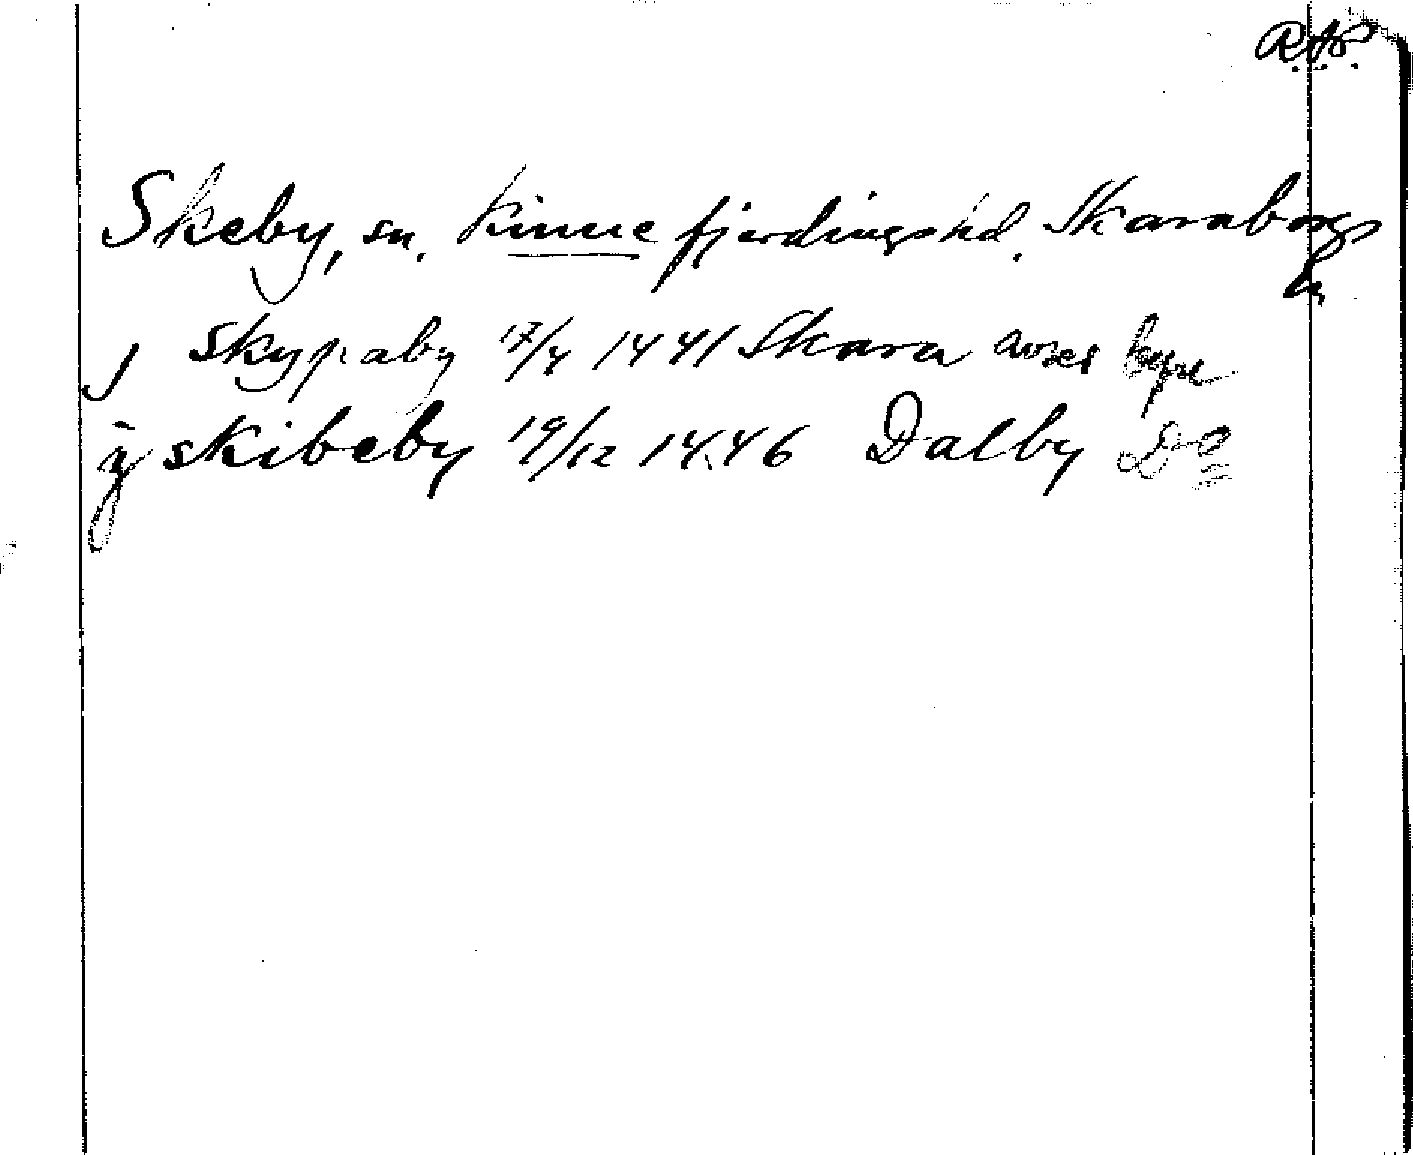 R.A.P.
Skeby, sn. Kinne fjerdingshd. Skaraborgs
l.
J Skypaby 17/4 1441 Skara
ÿ skibeby 19/12 1446 Dalby Do